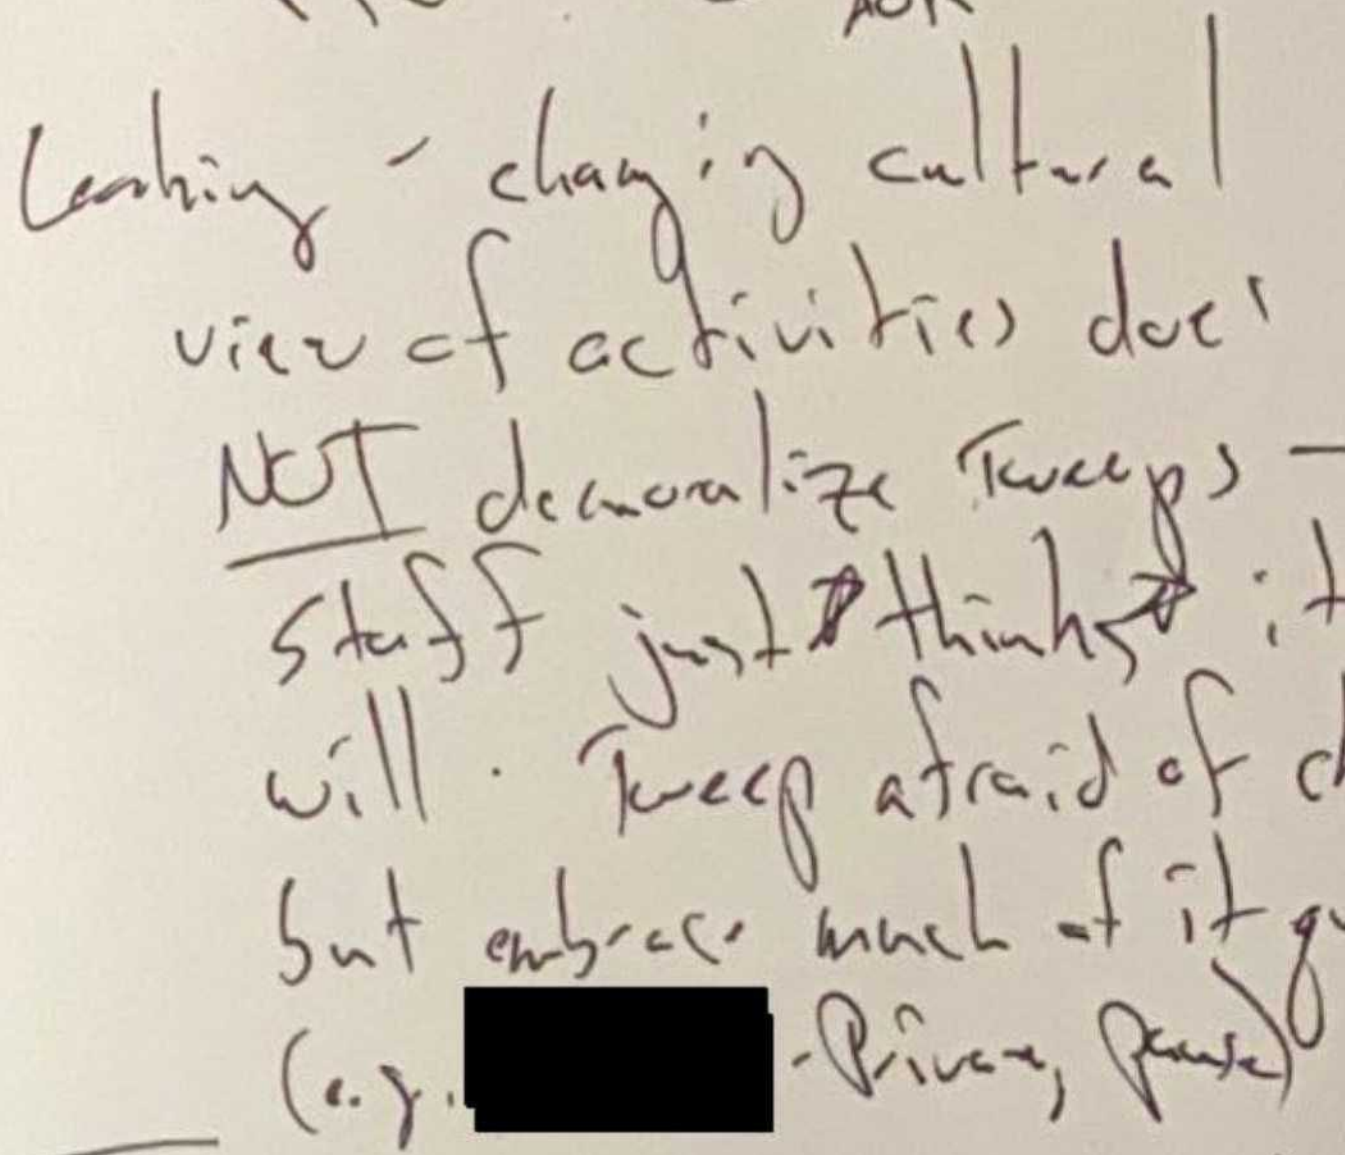 Leaking - changing cultural
view of activities does
NOT demoralize Tweeps -
Staff just thinks it
will. Tweep afraid of
but embrace much of it
(e.g. -Privacy,